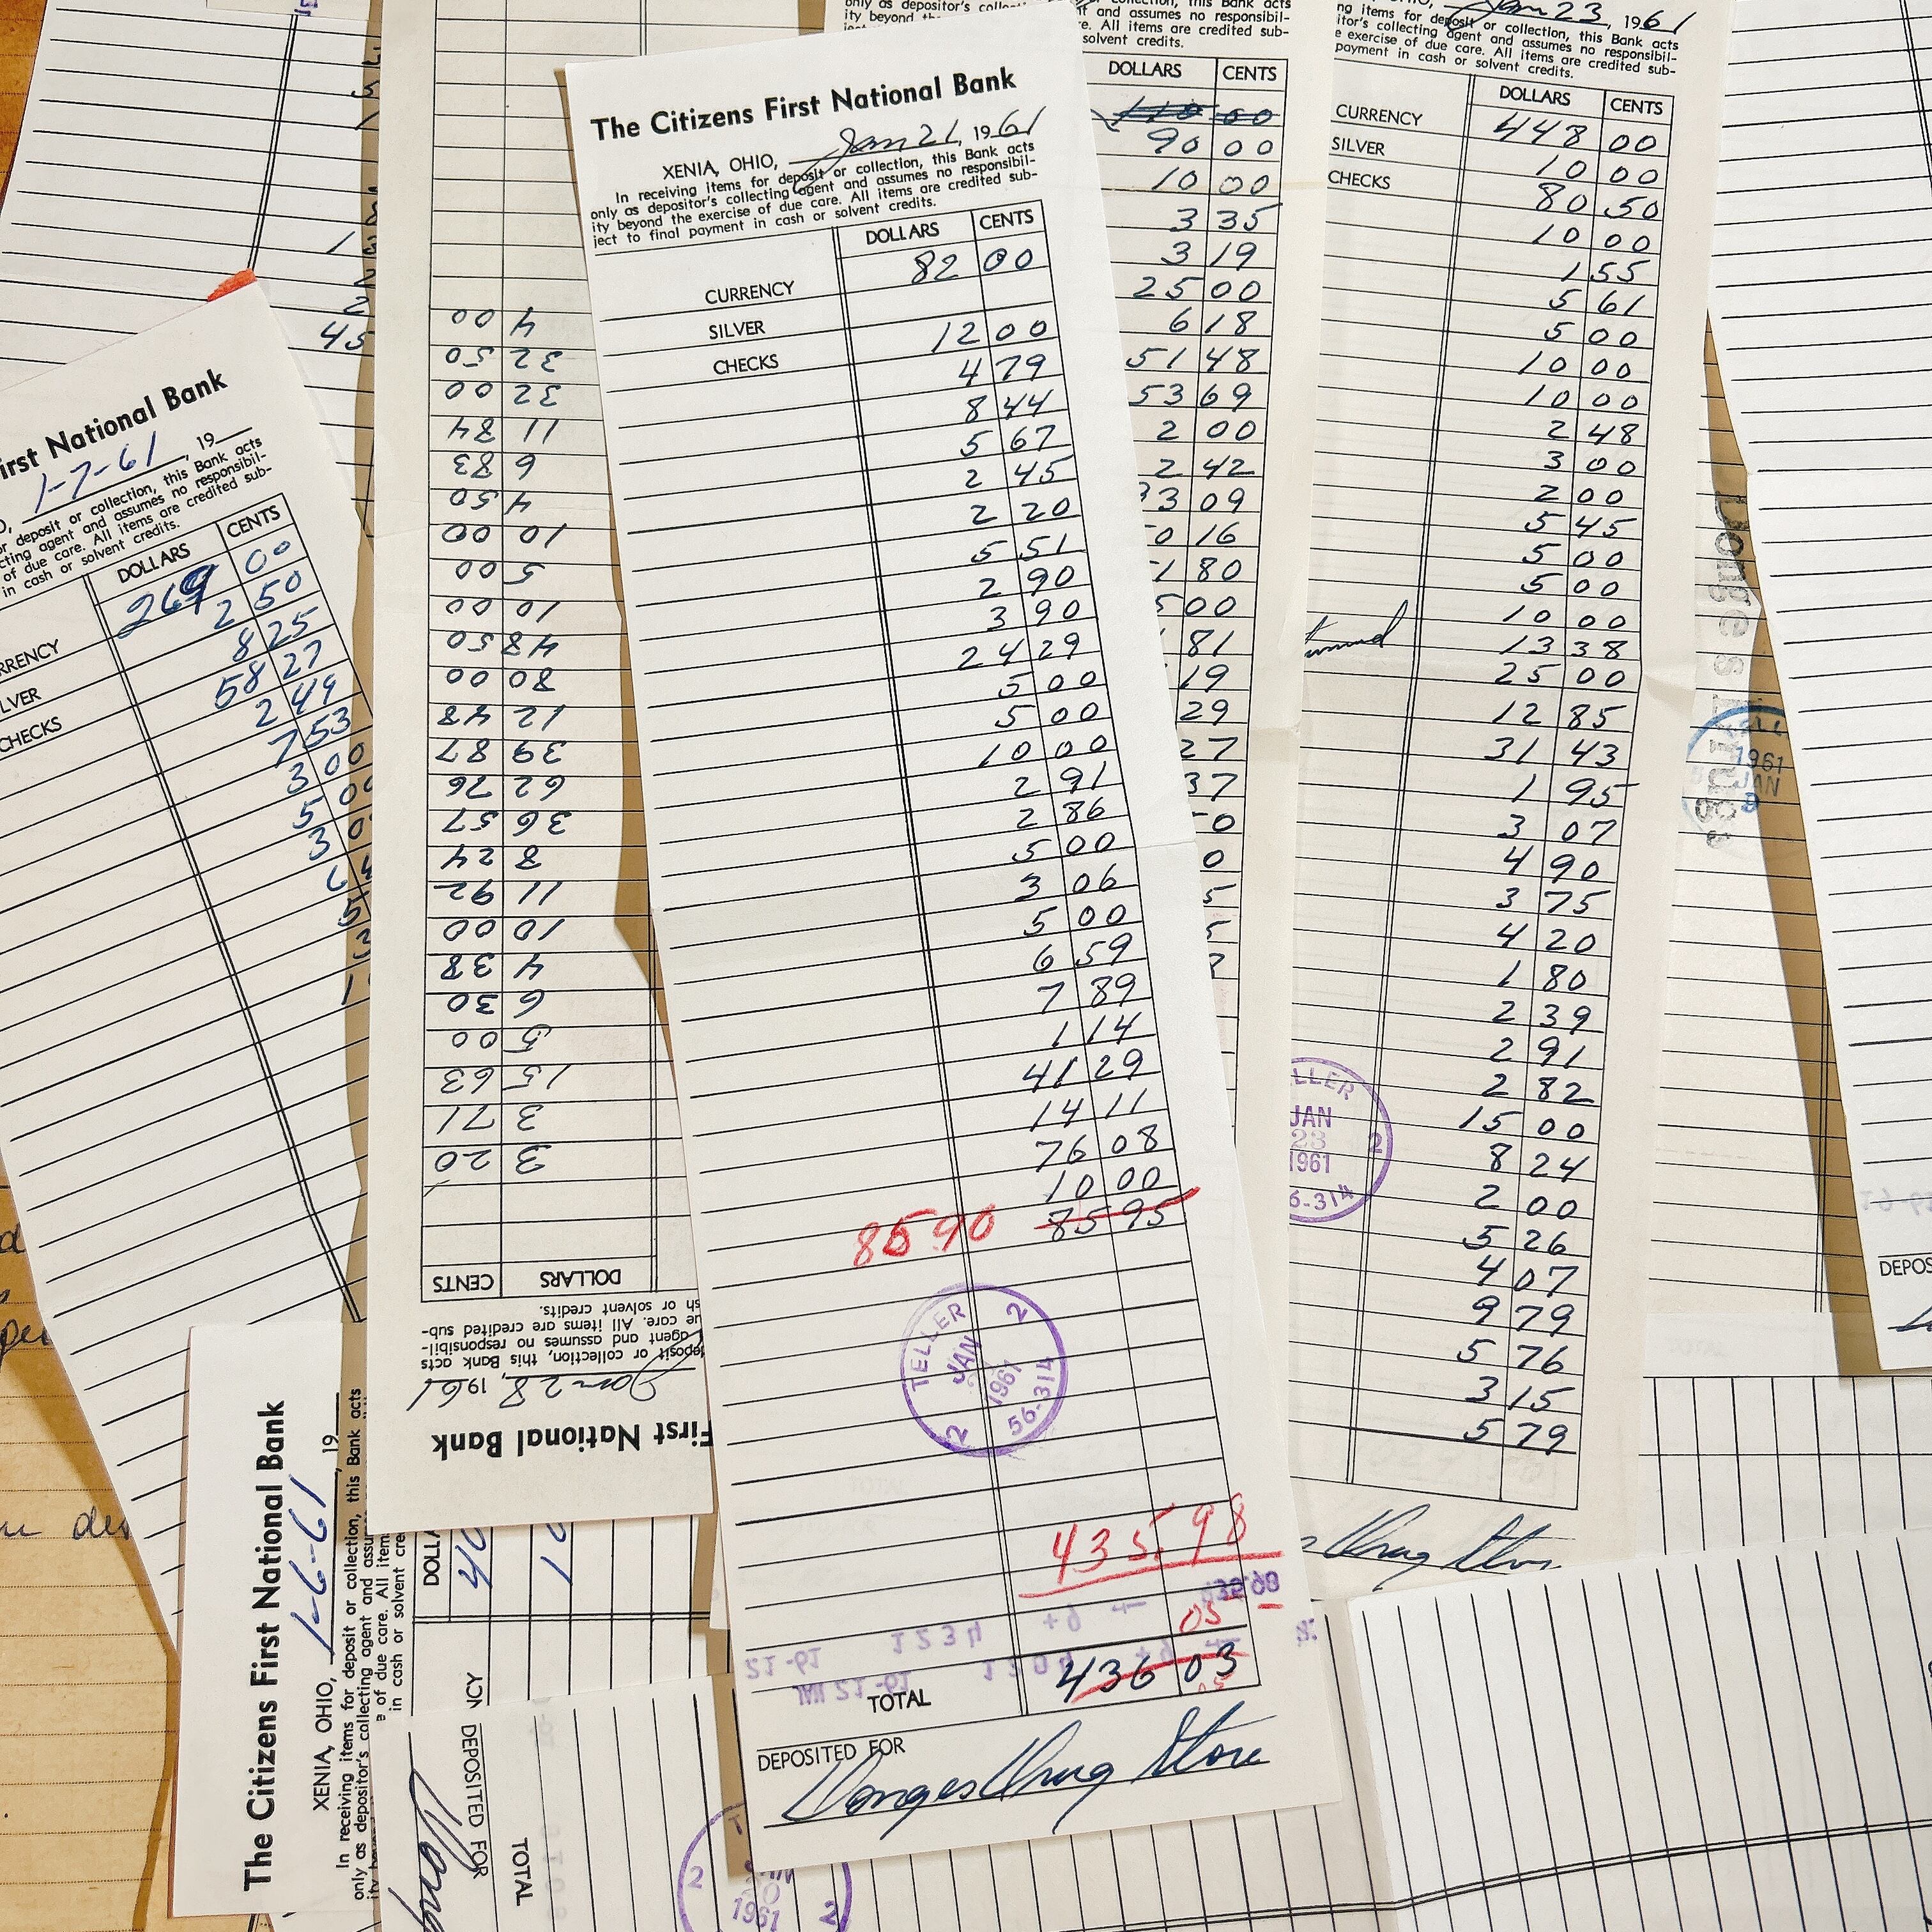 The Citizens First National Bank
XENIA, OHIO, Jan 21, 1961
In receiving items for deposit or collection, this Bank acts
only as depositor's collecting agent and assumes no responsibil-
ity beyond the exercise of due care. All items are credited sub-
ject to final payment in cash or solvent credits.
DOLLARS CENTS
CURRENCY 82 00
SILVER
CHECKS 12 00
4 79
8 44
5 67
2 45
2 20
5 51
2 90
3 90
24 29
5 00
5 00
10 00
2 91
2 86
5 00
3 06
5 00
6 59
7 89
1 14
41 29
14 11
76 08
10 00
85 90 85 95
TELLER 2
JAN
1961
56-314
2
435.98
05
TOTAL 436 03
DEPOSITED FOR
Donges Drug Store
irst National Bank
1-7-61, 19
or deposit or collection, this Bank acts
cting agent and assumes no responsibil-
of due care. All items are credited sub-
in cash or solvent credits.
DOLLARS CENTS
RRENCY 269 00
LVER 2 50
CHECKS 8 25
58 27
2 49
7 53
3 00
5 00
First National Bank
Jan 28, 1961
deposit or collection, this Bank acts
agent and assumes no responsibil-
ue care. All items are credited sub-
sh or solvent credits.
DOLLARS CENTS
3 20
3 71
15 63
5 00
6 30
4 38
10 00
11 92
8 24
36 57
62 76
39 87
12 48
80 00
48 50
10 00
5 00
10 00
4 50
6 83
11 84
32 00
32 50
4 00
only as depositor's
ity beyond and assumes no responsibil-
All items are credited sub-
solvent credits.
DOLLARS CENTS
110 00
90 00
10 00
3 35
3 19
25 00
6 18
51 48
53 69
2 00
2 42
33 09
0 16
1 80
5 00
81
19
29
27
37
Jan 23, 1961
ng items for deposit or collection, this Bank acts
itor's collecting agent and assumes no responsibil-
e exercise of due care. All items are credited sub-
payment in cash or solvent credits.
DOLLARS CENTS
CURRENCY 448 00
SILVER 10 00
CHECKS 80 50
10 00
1 55
5 61
5 00
10 00
10 00
2 48
3 00
2 00
5 45
5 00
5 00
10 00
13 38
25 00
12 85
31 43
1 95
3 07
4 90
3 75
4 20
1 80
2 39
2 91
2 82
15 00
8 24
2 00
5 26
4 07
9 79
5 76
3 15
5 79
LLER
JAN
23
1961
2
6-314
Drug Store
1961
JAN
The Citizens First National Bank
XENIA, OHIO, 1-6-61, 19
In receiving items for deposit or collection, this Bank acts
only as depositor's collecting agent and assu
of due care. All item
in cash or solvent cre
DOLL
NCY
DEPOSITED FOR
TOTAL
2
1961
2
DEPOS